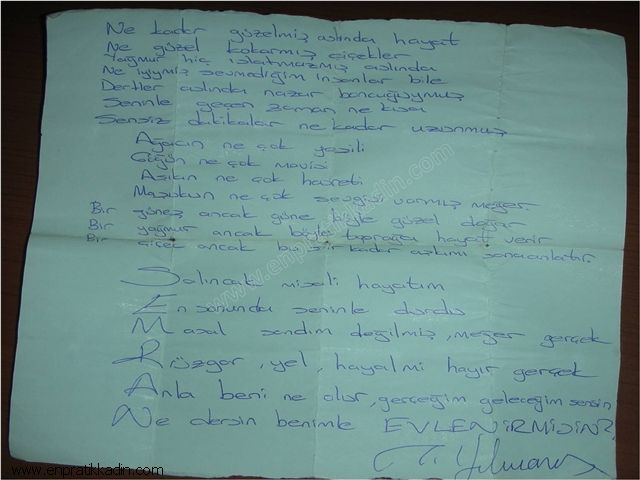 Ne kadar güzelmiş aslında hayat
Ne güzel kokarmış çiçekler
Yağmur hiç ıslatmazmış aslında
Ne iyiymiş sevmediğim insanlar bile
Dertler aslında nazar boncuğuymuş
Seninle geçen zaman ne kısa
Sensiz dakikalar ne kadar uzunmuş
Ağacın ne çok yeşili
Göğün ne çok mavisi
Aşıkın ne çok hasreti
Maşukun ne çok sevgisi varmış meğer
Bir güneş ancak güne böyle güzel doğar
Bir yağmur ancak böyle toprağa hayat verir
Bir çiçek ancak bu kadar aşkımı sana anlatır
Salıncak misali hayatım
En sonunda seninle durdu
Masal sandım değilmiş, meğer gerçek
Rüzgar, yel, hayal mi hayır gerçek
Anla beni ne olur, gerçeğim geleceğim sensin
Ne dersin benimle EVLENİRMİSİN?
Yılmaz
www.enpratikkadin.com
www.enpratikkadin.com